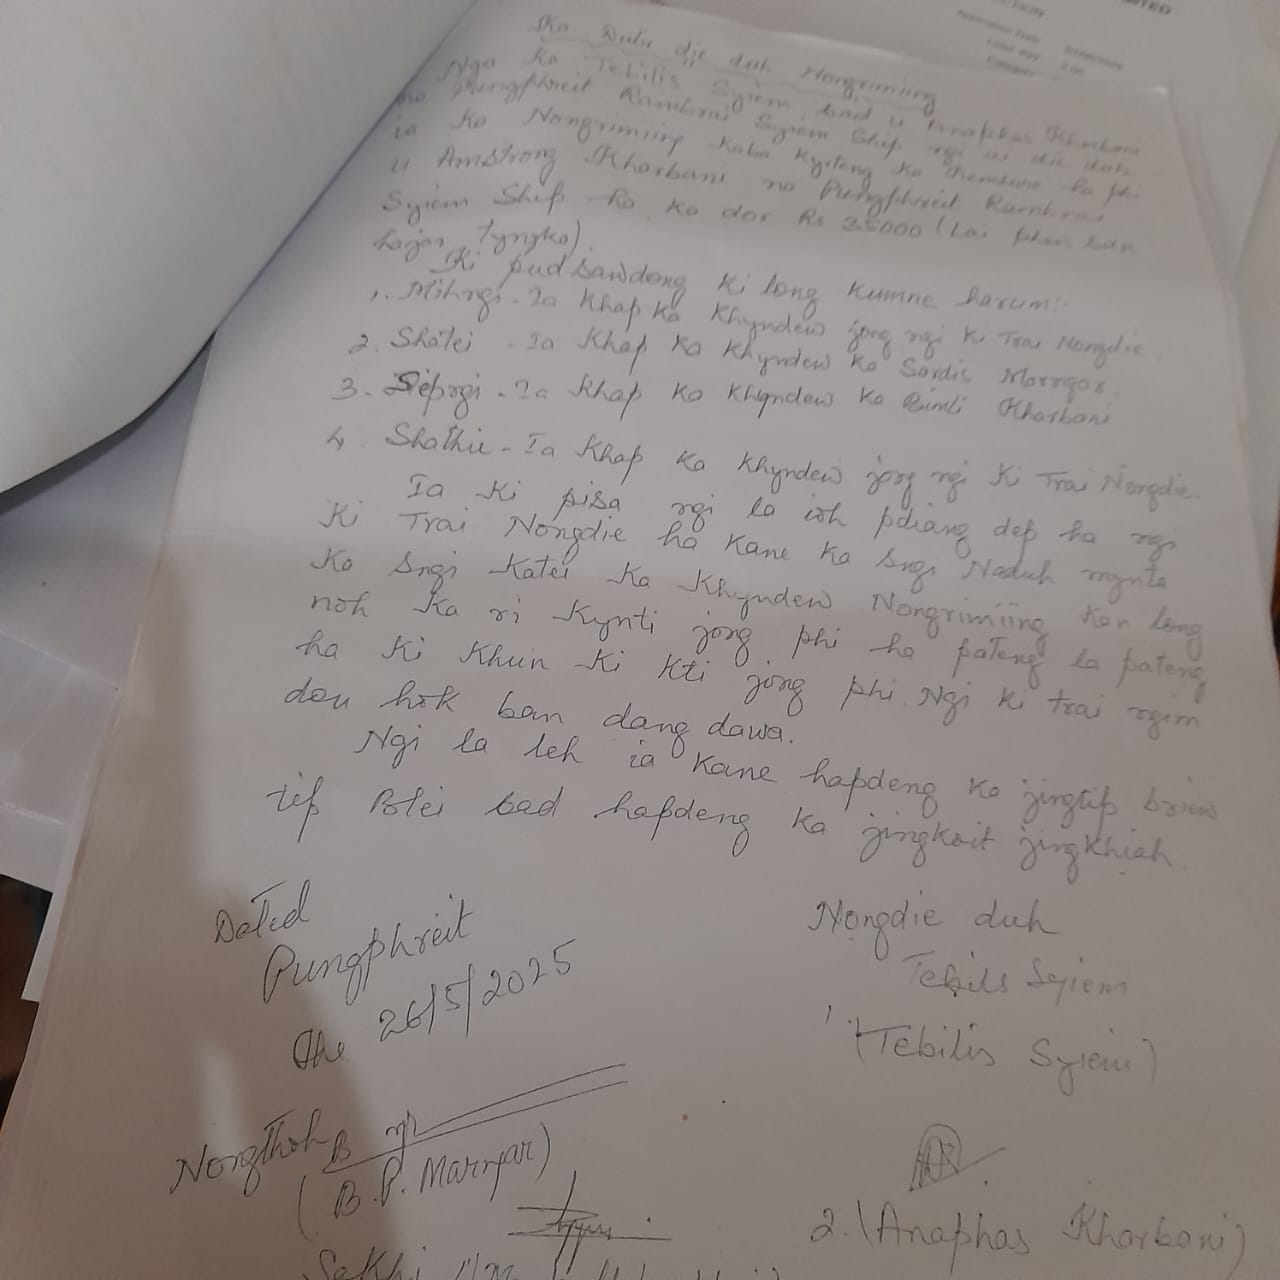 Ka Dulir die duh Nongrimiing
Nga ka Tebilis Syiem bad u Anaphas Kharbani
na Pungphreit Rambrai Syiem Ship ngi ai die duh
ia ka Nongrimiing kaba kyrteng ka ha phi
u Amstrong Kharbani na Pungphreit Rambrai
Syiem Ship ha ka dor Rs 35000 (Lai phew san
hajar Tyngka).
Ki pud sawdong ki long kumne harum:-
1. Mihngi - Ia Khap ka Khyndew jong ngi ki Trai Nongdie
2. Shatei - Ia Khap ka Khyndew ka Sardis Marngar.
3. Sepngi - Ia Khap ka Khyndew ka Bimli Kharbani
4. Shathie - Ia Khap ka Khyndew jong ngi ki Trai Nongdie.
Ia ki pisa ngi la ioh pdiang dep ha ngi
ki Trai Nongdie ha kane ka sngi Naduh mynta
ka sngi katei ka Khyndew Nongrimiing kan long
noh ka ri kynti jong phi ha pateng la pateng
ha ki khun ki kti jong phi. Ngi ki trai ngim
don hok ban dang dawa.
Ngi la leh ia kane hapdeng ka jingtip briew
tip Blei bad hapdeng ka jingkoit jingkhiah.
Dated
Pungphreit
The 26/5/2025
Nongdie duh
Tebils Syiem
(Tebilis Syiem)
Nongthoh
(B.P. Marngar)
2. (Anaphas Kharbani)
Sakhi